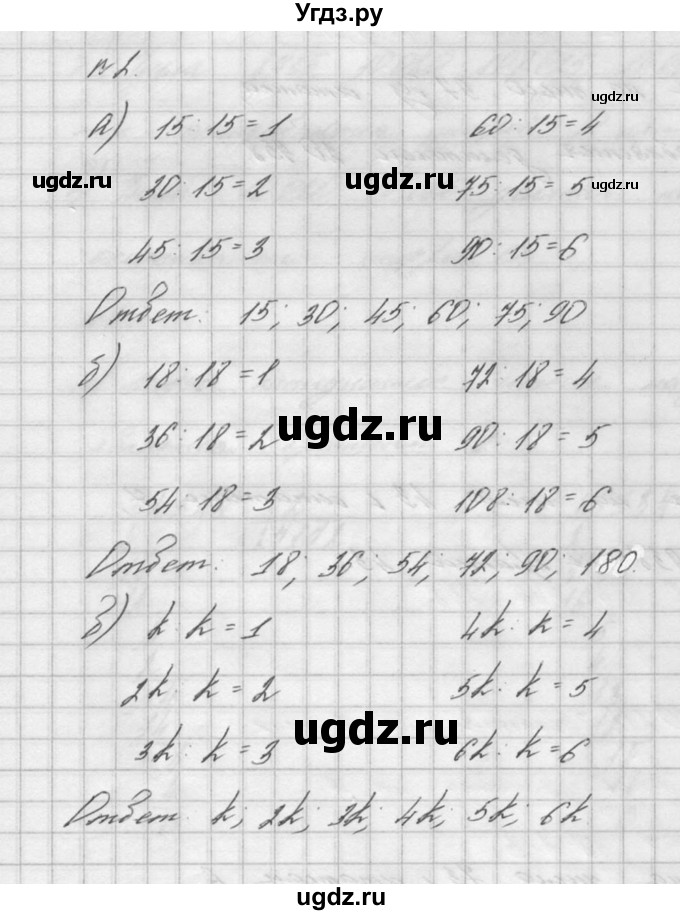 Угдз.ру
№2.
ugdz.ru
а) 15:15=1 60:15=4
ugdz.ru ugdz.ru ugdz.ru
30:15=2 75:15=5
45:15=3 90:15=6
Ответ: 15; 30; 45; 60; 75; 90
б) 18:18=1 72:18=4
ugdz.ru
36:18=2 90:18=5
54:18=3 108:18=6
Ответ: 18; 36; 54; 72; 90; 180.
в) k:k=1 4k:k=4
2k:k=2 5k:k=5
ugdz.ru
3k:k=3 6k:k=6
Ответ: k; 2k; 3k; 4k; 5k; 6k
ugdz.ru